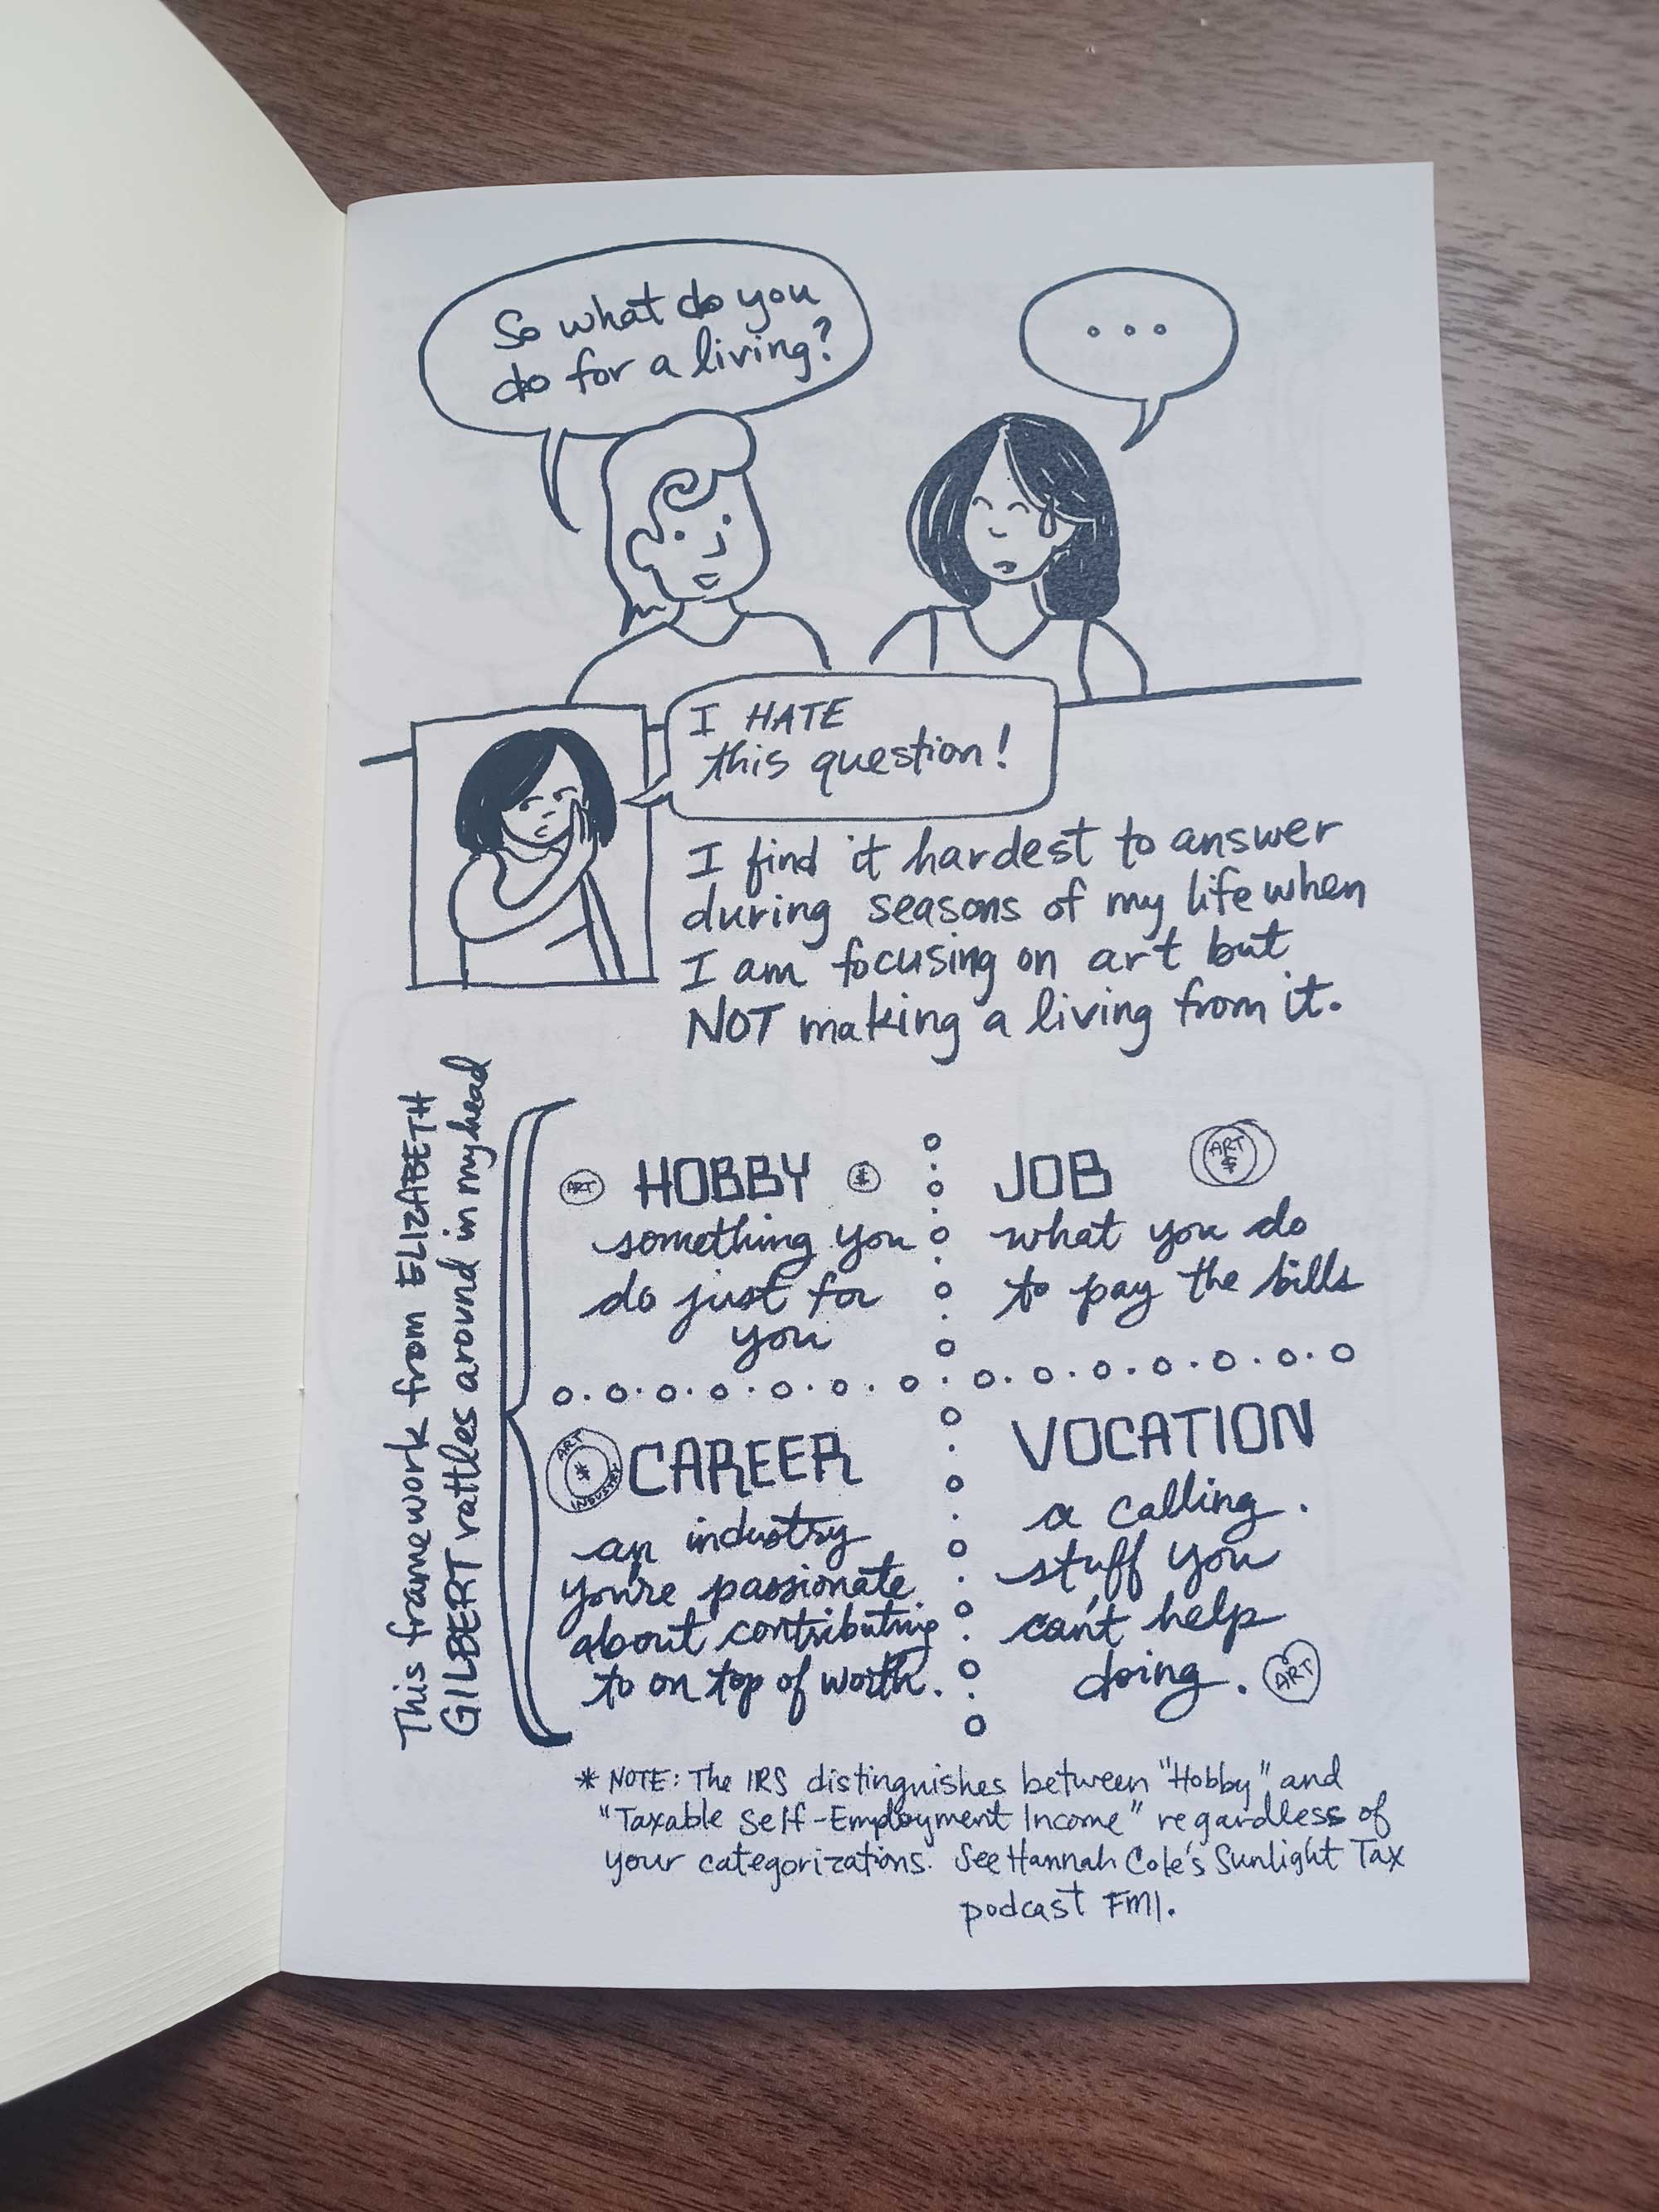 So what do you
do for a living?
...
I HATE
this question!
I find it hardest to answer
during seasons of my life when
I am focusing on art but
NOT making a living from it.
This framework from ELIZABETH
GILBERT rattles around in my head
ART HOBBY $
something you
do just for
you
JOB ART $
what you do
to pay the bills
ART $ INDUSTRY CAREER
an industry
you're passionate
about contributing
to on top of worth.
VOCATION
a calling.
stuff you
can't help
doing. ART
* NOTE: The IRS distinguishes between "Hobby" and
"Taxable Self-Employment Income" regardless of
your categorizations. See Hannah Cole's Sunlight Tax
podcast FMI.